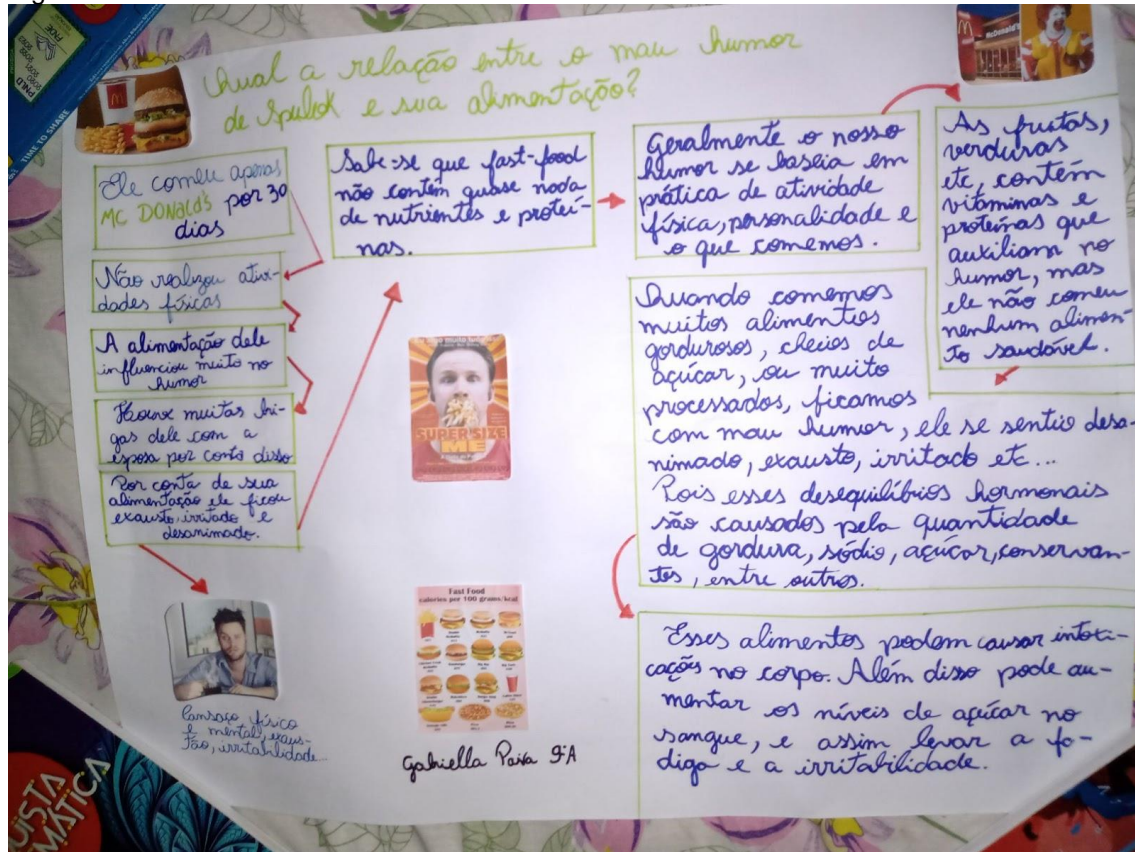 Qual a relação entre o mau humor
de Spulok e sua alimentação?
Ele comeu apenas
MC DONALd'S por 30
dias
Não realizou ativi-
dades físicas
A alimentação dele
influenciou muito no
humor
Houve muitas bri-
gas dele com a
esposa por conta disso
Por conta de sua
alimentação ele ficou
exausto, irritado e
desanimado.
Cansaço físico
e mental, exaus-
tão, irritabilidade...
Sabe-se que fast-food
não contém quase nada
de nutrientes e proteí-
nas.
SUPER SIZE
ME
Fast Food
calories per 100 grams/kcal
Gabriella Paiva 9ºA
Geralmente o nosso
humor se baseia em
prática de atividade
física, personalidade e
o que comemos.
As frutas,
verduras
etc, contém
vitaminas e
proteínas que
auxiliam no
humor, mas
ele não comeu
nenhum alimen-
to saudável.
Quando comemos
muitos alimentos
gordurosos, cheios de
açúcar, ou muito
processados, ficamos
com mau humor, ele se sentio desa-
nimado, exausto, irritado etc...
Pois esses desequilíbrios hormonais
são causados pela quantidade
de gordura, sódio, açúcar, conservan-
tes, entre outros.
Esses alimentos podem causar intoxi-
cações no corpo. Além disso pode au-
mentar os níveis de açúcar no
sangue, e assim levar a fa-
diga e a irritabilidade.
McDonald's
PNLD
TIME TO SHARE